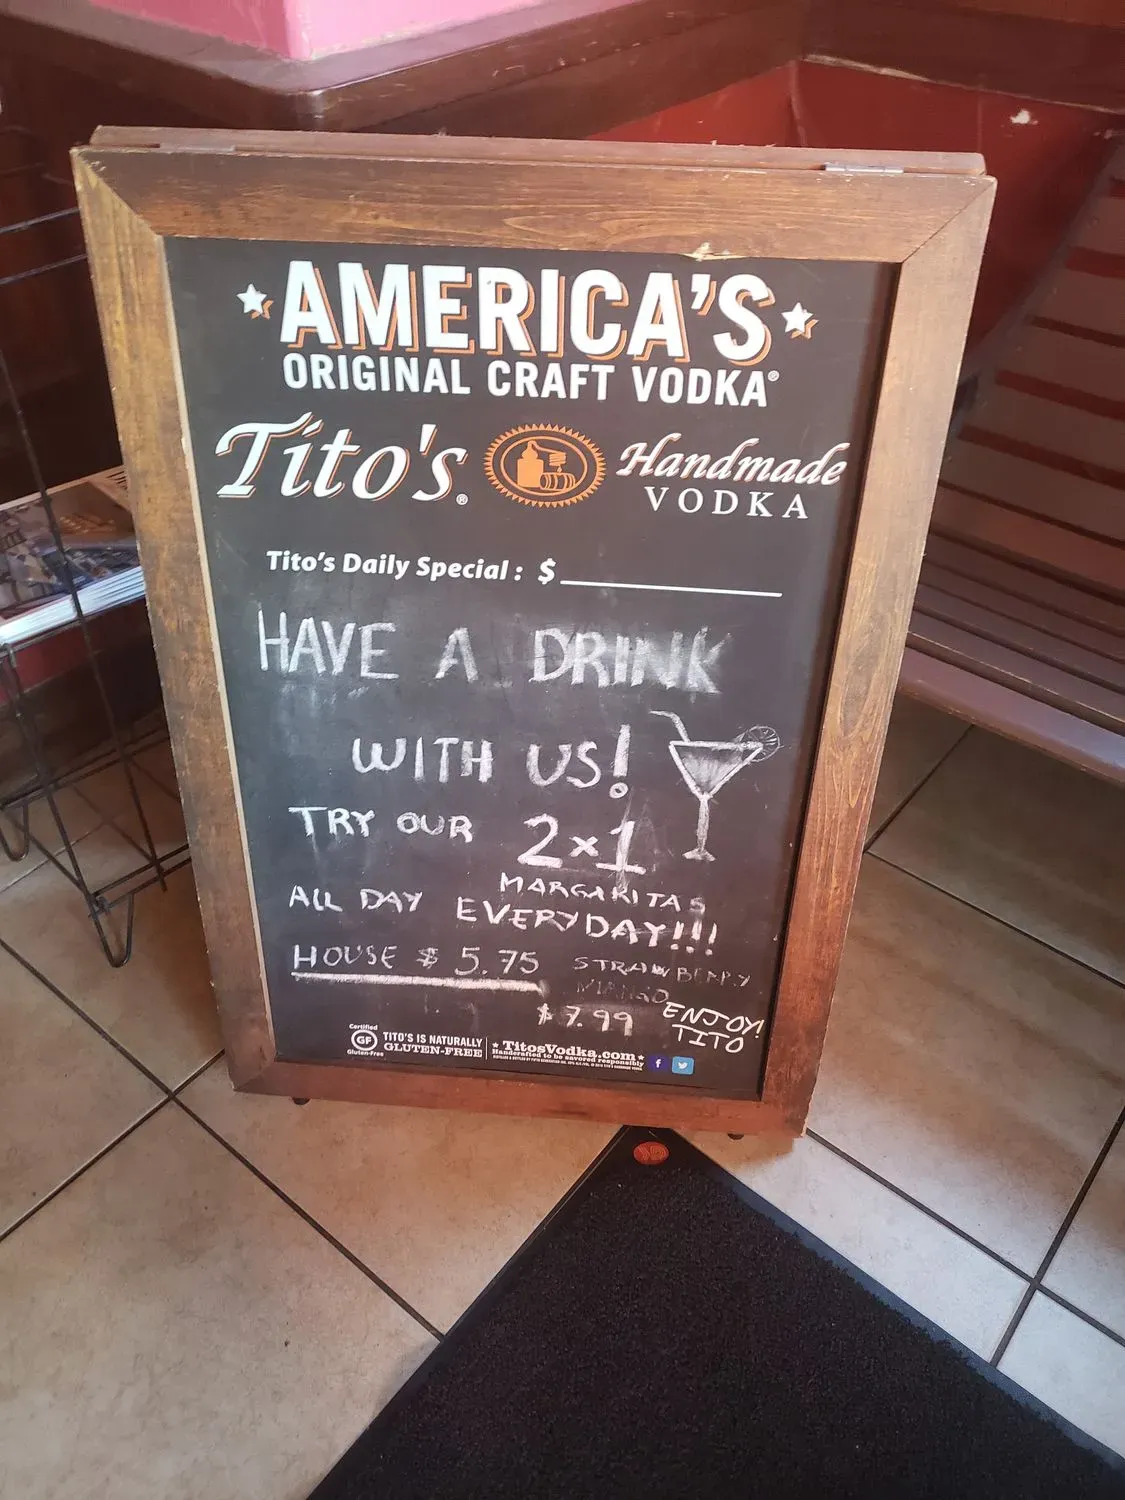 AMERICA'S
ORIGINAL CRAFT VODKA®
Tito's® Handmade
VODKA
Tito's Daily Special : $
HAVE A DRINK
WITH US!
TRY OUR 2x1
MARGARITAS
ALL DAY EVERYDAY!!!
HOUSE $ 5.75 STRAWBERRY
MANGO
$7.99 ENJOY!
TITO
Certified
GF
Gluten-Free
TITO'S IS NATURALLY
GLUTEN-FREE
TitosVodka.com
Handcrafted to be savored responsibly